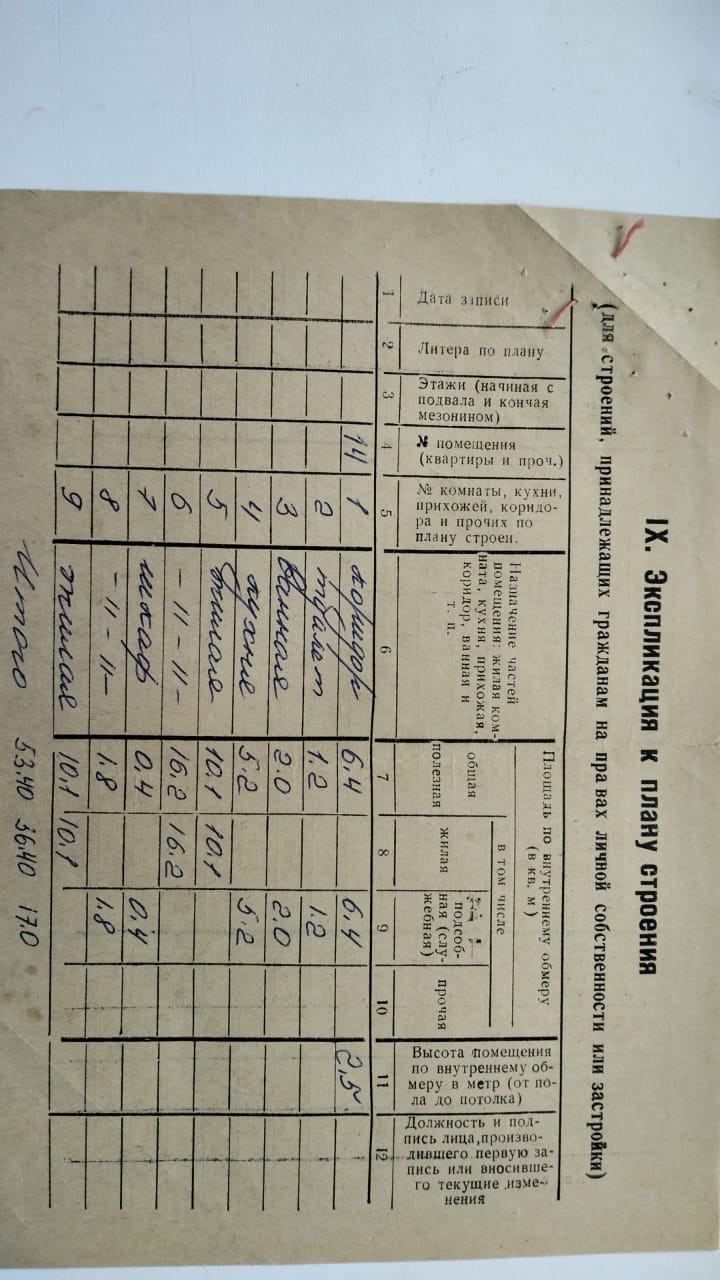 IX. Экспликация к плану строения
(для строений, принадлежащих гражданам на правах личной собственности или застройки)
Дата записи
Литера по плану
Этажи (начиная с
подвала и кончая
мезонином)
№ помещения
(квартиры и проч.)
№ комнаты, кухни,
прихожей, коридо-
ра и прочих по
плану строен.
Назначение частей
помещения: жилая ком-
ната, кухня, прихожая,
коридор, ванная и
т. п.
Площадь по внутреннему обмеру
(в кв. м)
общая
полезная
в том числе
жилая
подсоб-
ная (слу-
жебная)
прочая
Высота помещения
по внутреннему об-
меру в метр (от по-
ла до потолка)
Должность и под-
пись лица, произво-
дившего первую за-
пись или вносивше-
го текущие изме-
нения
1 2 3 4 5 6 7 8 9 10 11 12
14 1 коридор 6,4 6,4 2,5
2 туалет 1.2 1.2
3 ванная 2.0 2.0
4 кухня 5.2 5.2
5 жилая 10,1 10,1
6 -"-"- 16,2 16,2
7 шкаф 0,4 0,4
8 -"-"- 1.8 1.8
9 жилая 10,1 10,1
Итого 53,40 36,40 17.0